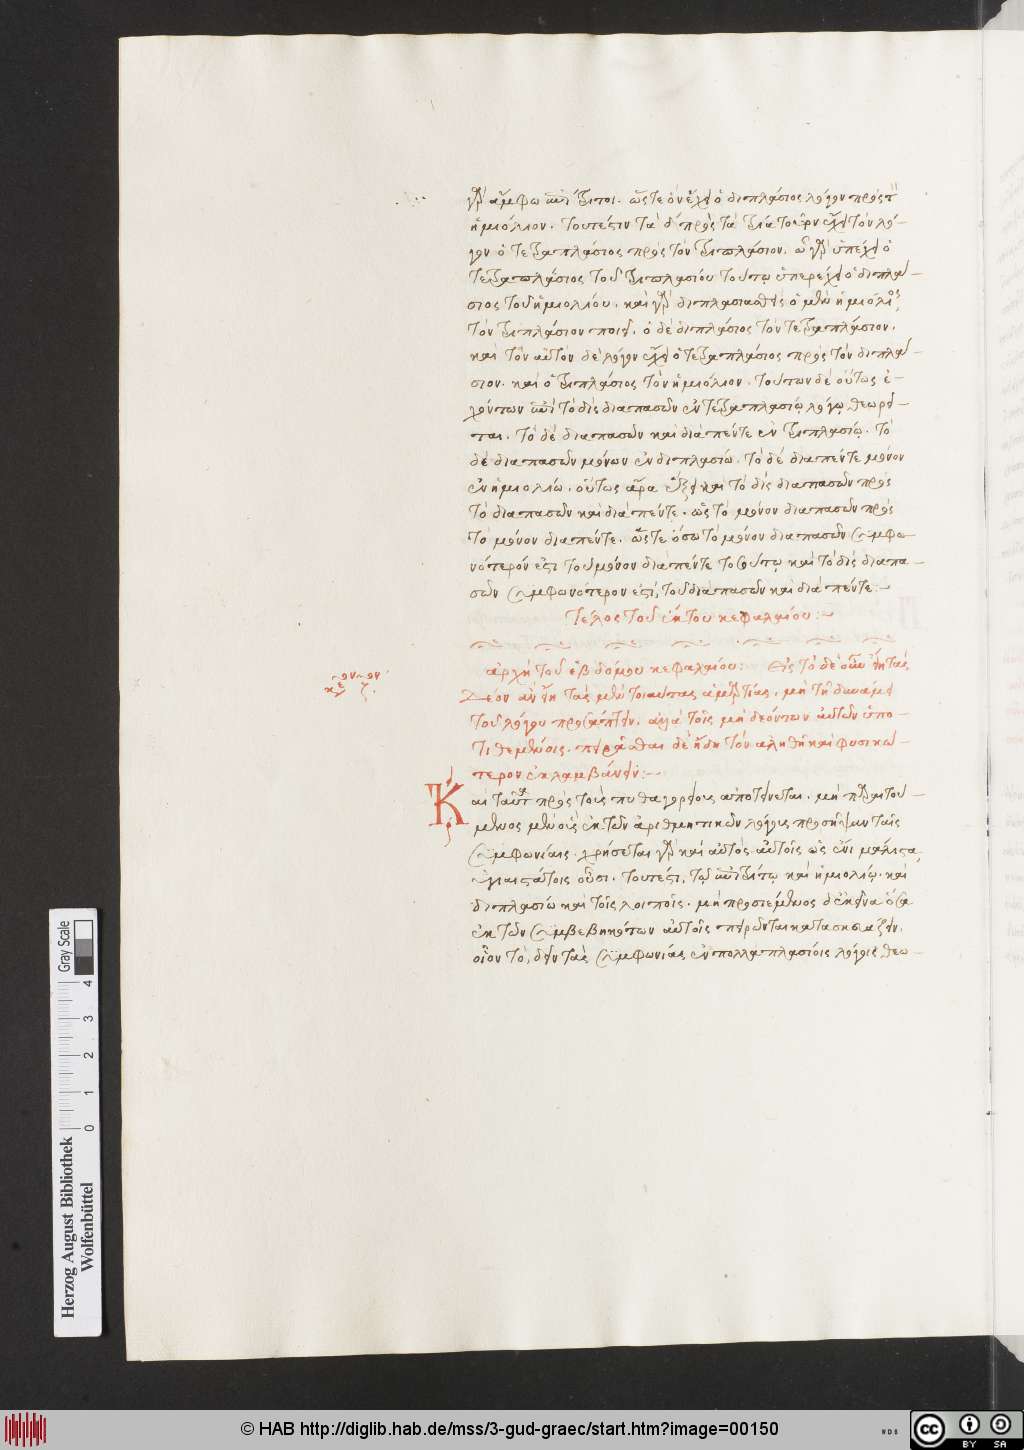 γὰρ ἄμφω ἐπίτριτοι. ὥστε ὃν ἔχει ὁ διπλάσιος λόγον πρὸς τὸν
ἡμιόλιον. τουτέστιν τὰ δ πρὸς τὰ τρία τοῦτον ἔχει τὸν λό-
γον ὁ τετραπλάσιος πρὸς τὸν τριπλάσιον. ᾧ γὰρ ὑπερέχει ὁ
τετραπλάσιος τοῦ τριπλασίου τούτῳ ὑπερέχει ὁ διπλά-
σιος τοῦ ἡμιολίου. καὶ γὰρ διπλασιασθεὶς ὁ μὲν ἡμιόλιος
τὸν τριπλάσιον ποιεῖ. ὁ δὲ διπλάσιος τὸν τετραπλάσιον.
καὶ τὸν αὐτὸν δὲ λόγον ἔχει ὁ τετραπλάσιος πρὸς τὸν διπλά-
σιον. καὶ ὁ τριπλάσιος τὸν ἡμιόλιον. τούτων δὲ οὕτως ἐ-
χόντων ἐπεὶ τὸ δὶς διαπασῶν ἐν τετραπλασίῳ λόγῳ θεωρεῖ-
ται. τὸ δὲ διαπασῶν καὶ διαπέντε ἐν τριπλασίῳ. τὸ
δὲ διαπασῶν μόνον ἐν διπλασίω. τὸ δὲ διαπέντε μόνον
ἐν ἡμιολίω. οὕτως ἄρα ἕξει καὶ τὸ δὶς διαπασῶν πρὸς
τὸ διαπασῶν καὶ διαπέντε. ὡς τὸ μόνον διαπασῶν πρὸς
τὸ μόνον διαπέντε. ὥστε ὅσω τὸ μόνον διαπασῶν συμφω-
νότερόν ἐστι τοῦ μόνον διαπέντε τοσούτῳ καὶ τὸ δὶς διαπα-
σῶν συμφωνότερον ἐστι, τοῦ διαπασῶν καὶ διαπέντε:-
τέλος τοῦ ἕκτου κεφαλαίου:-
ἀρχὴ τοῦ ἑβδόμου κεφαλαίου: Εἰς τὸ δέον
Δέον ἂν εἴη τὰς μὲν τοιαύτας ἁμαρτίας, μὴ τῇ δυνάμει
τοῦ λόγου προσάπτειν. ἀλλὰ τοῖς μὴ δεόντως αὐτὸν ὑπο-
τιθεμένοις. πειρᾶσθαι δὲ ἤδη τὸν ἀληθῆ καὶ φυσικώ-
τερον ἐκλαμβάνειν:-
Καὶ ταῦτα πρὸς τοὺς πυθαγορείους ἀποτείνεται. μὴ
μενος μὲν οἷς ἐκ τῶν ἀριθμητικῶν λόγοις προσῆψαν ταῖς
συμφωνίαις. χρήσεται γὰρ καὶ αὐτὸς αὐτοῖς ὡς ἔνι μάλιστα
ὑγιεστάτοις οὖσι. τουτέστι, τῷ ἐπιτρίτῳ καὶ ἡμιολίῳ. καὶ
διπλασίω καὶ τοῖς λοιποῖς. μὴ προσιέμενος δ' ἐκεῖνα ὅσα
ἐκ τῶν συμβεβηκότων αὐτοῖς πειρῶνται κατασκευάζειν.
οἷον τὸ, δεῖν τὰς συμφωνίας ἐν πολλαπλασίοις λόγοις θεω-
Herzog August Bibliothek
Wolfenbüttel
0 1 2 3 4
Gray Scale
© HAB http://diglib.hab.de/mss/3-gud-graec/start.htm?image=00150
WDB
cc BY SA